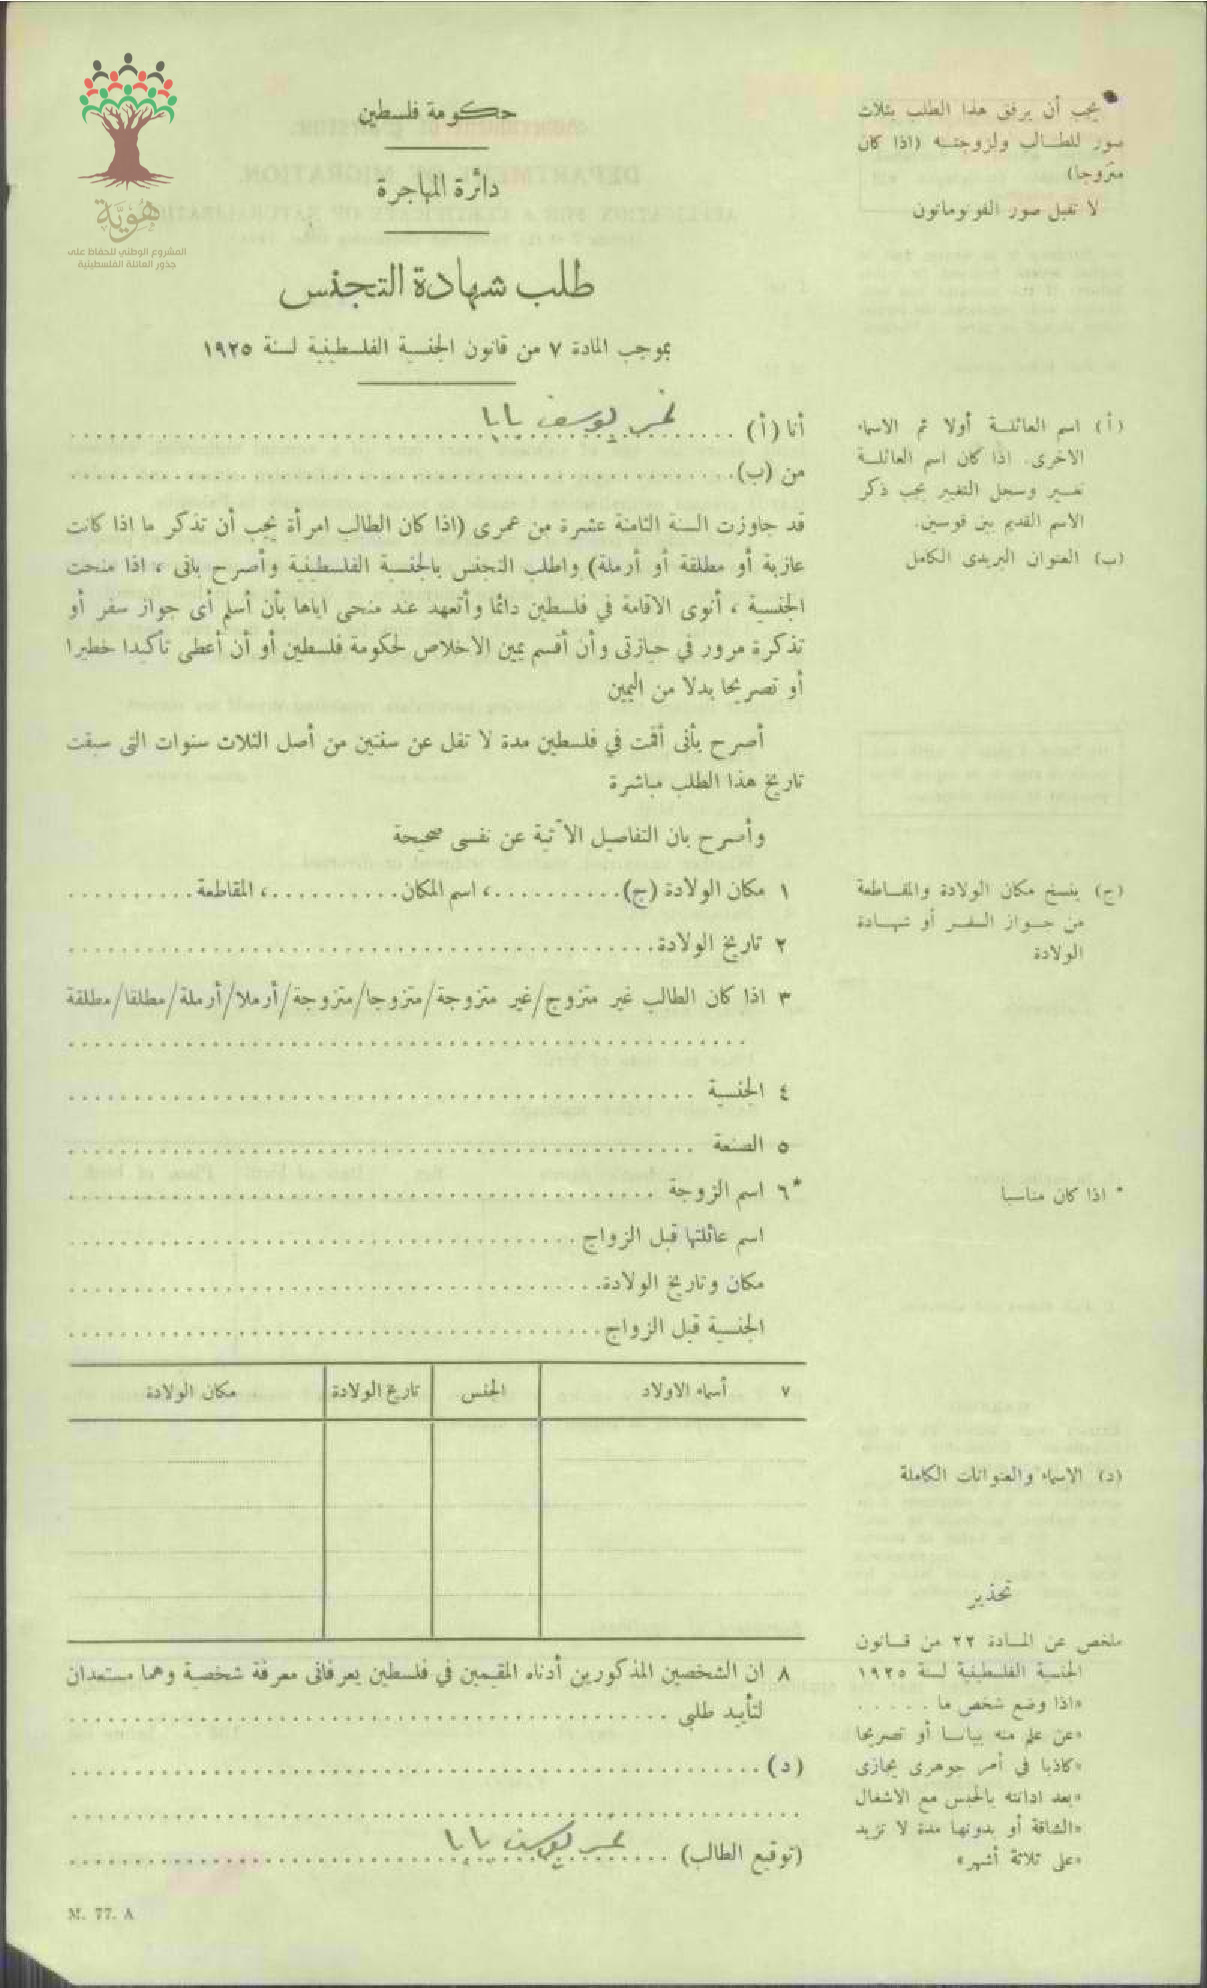 هُوِيَّة
المشروع الوطني للحفاظ على
جذور العائلة الفلسطينية
حكومة فلسطين
دائرة المهاجرة
طلب شهادة التجنس
بموجب المادة ٧ من قانون الجنسية الفلسطينية لسنة ١٩٢٥
يجب أن يرفق هذا الطلب بثلاث
صور للطالب ولزوجته (اذا كان
متزوجا)
لا تقبل صور الفوتوماتون
أنا (أ) نمر يوسف بابا
من (ب)
قد جاوزت السنة الثامنة عشرة من عمرى (اذا كان الطالب امرأة يجب أن تذكر ما اذا كانت
عازبة أو مطلقة أو أرملة) واطلب التجنس بالجنسية الفلسطينية وأصرح بانى ، اذا منحت
الجنسية ، أنوى الاقامة في فلسطين دائما وأتعهد عند منحى اياها بأن أسلم أى جواز سفر أو
تذكرة مرور في حيازتى وأن أقسم يمين الاخلاص لحكومة فلسطين أو أن أعطى تأكيدا خطيرا
أو تصريحا بدلا من اليمين
أصرح بأنى أقمت في فلسطين مدة لا تقل عن سنتين من أصل الثلاث سنوات التى سبقت
تاريخ هذا الطلب مباشرة
وأصرح بان التفاصيل الآتية عن نفسى صحيحة
١ مكان الولادة (ج)..........، اسم المكان..........، المقاطعة..........
٢ تاريخ الولادة
٣ اذا كان الطالب غير متزوج/غير متزوجة/متزوجا/متزوجة/أرملا/أرملة/مطلقا/مطلقة
٤ الجنسية
٥ الصنعة
*٦ اسم الزوجة
اسم عائلتها قبل الزواج
مكان وتاريخ الولادة
الجنسية قبل الزواج
٧ أسماء الاولاد الجنس تارع الولادة مكان الولادة
٨ ان الشخصين المذكورين أدناه المقيمين في فلسطين يعرفانى معرفة شخصية وهما مستعدان
لتأييد طلبى
(د)
(توقيع الطالب) نمر يوسف بابا
(أ) اسم العائلة أولا ثم الاسماء
الاخرى. اذا كان اسم العائلة
تغير وسجل التغيير يجب ذكر
الاسم القديم بين قوسين.
(ب) العنوان البريدى الكامل
(ج) ينسخ مكان الولادة والمقاطعة
من جواز السفر أو شهادة
الولادة
* اذا كان مناسبا
(د) الاسماء والعنوانات الكاملة
تحذير
ملخص عن المادة ٢٢ من قانون
الجنسية الفلسطينية لسنة ١٩٢٥
«اذا وضع شخص ما . . . . .
«عن علم منه بيانا أو تصريحا
«كاذبا في أمر جوهرى يجازى
«بعد ادانته بالحبس مع الاشغال
«الشاقة أو بدونها مدة لا تزيد
«على ثلاثة أشهر»
M. 77. A